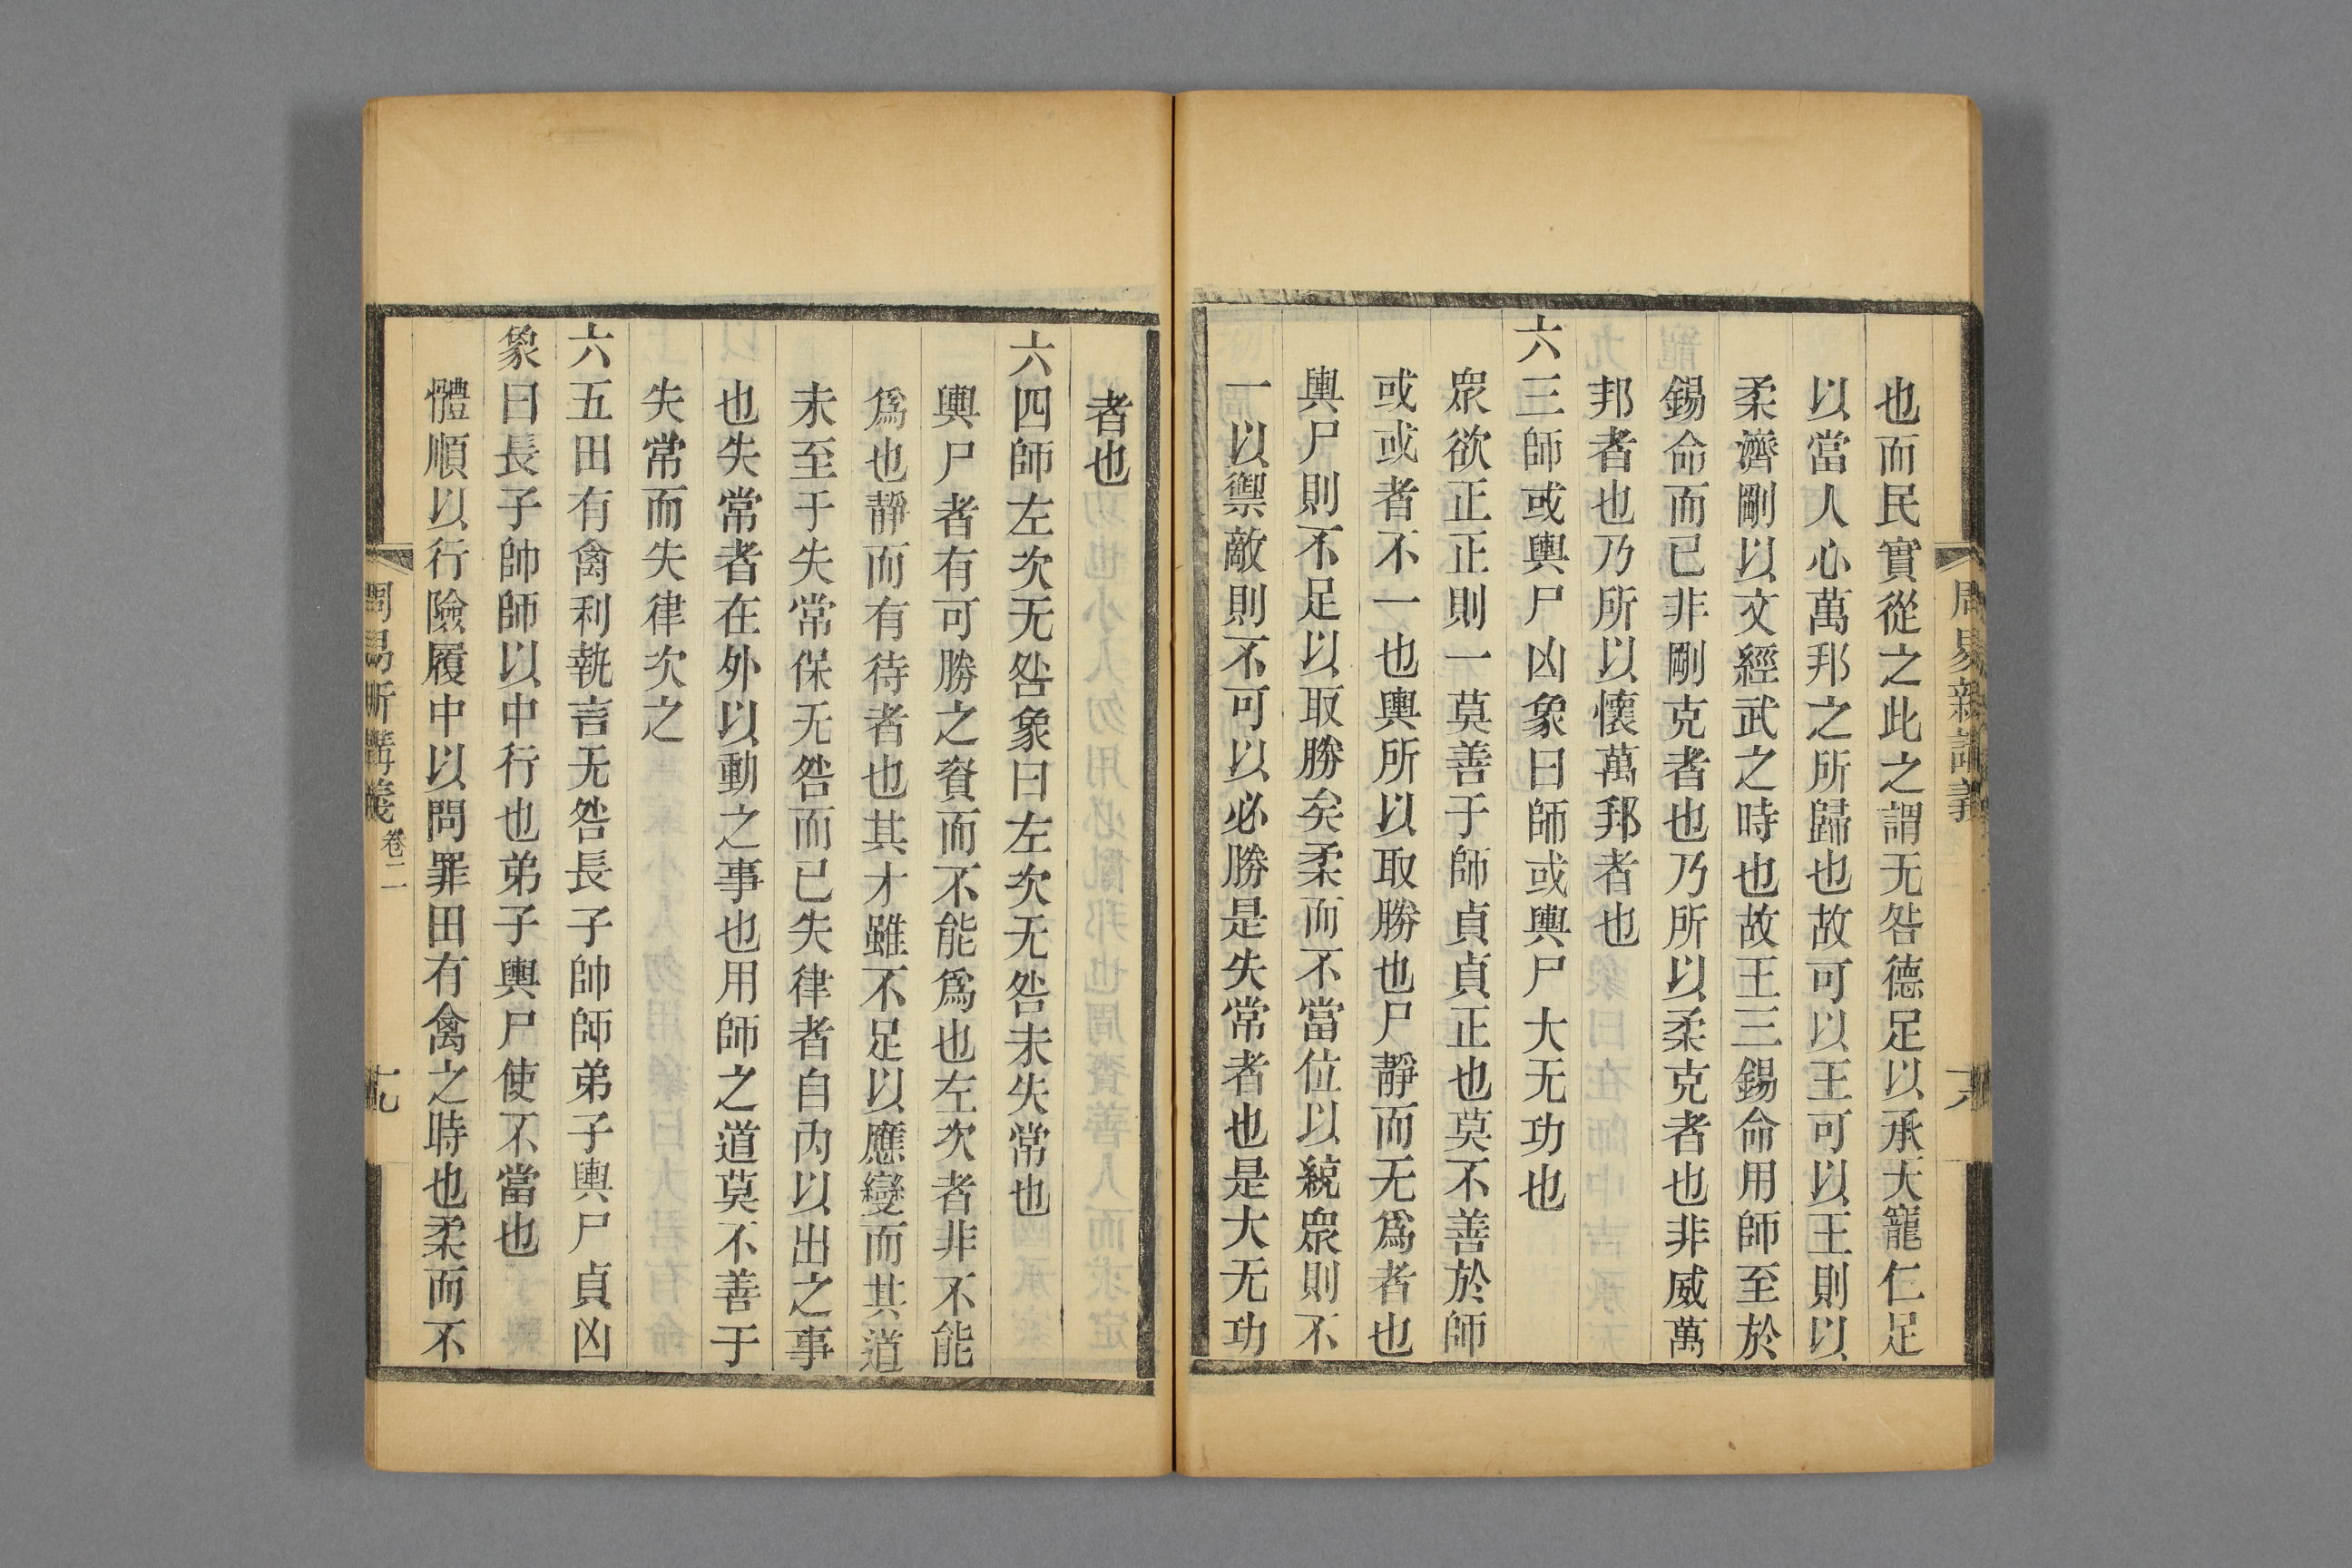 也而民實從之此之謂无咎德足以承天寵仁足
以當人心萬邦之所歸也故可以王可以王則以
柔濟剛以文經武之時也故王三錫命用師至於
錫命而已非剛克者也乃所以柔克者也非威萬
邦者也乃所以懷萬邦者也
六三師或輿尸凶象曰師或輿尸大无功也
眾欲正正則一莫善于師貞貞正也莫不善於師
或或者不一也輿所以取勝也尸靜而无爲者也
輿尸則不足以取勝矣柔而不當位以統眾則不
一以禦敵則不可以必勝是失常者也是大无功
者也
六四師左次无咎象曰左次无咎未失常也
輿尸者有可勝之資而不能爲也左次者非不能
爲也靜而有待者也其才雖不足以應變而其道
未至于失常保无咎而已失律者自內以出之事
也失常者在外以動之事也用師之道莫不善于
失常而失律次之
六五田有禽利執言无咎長子帥師弟子輿尸貞凶
象曰長子帥師以中行也弟子輿尸使不當也
體順以行險履中以問罪田有禽之時也柔而不
周易新講義 卷二 十九